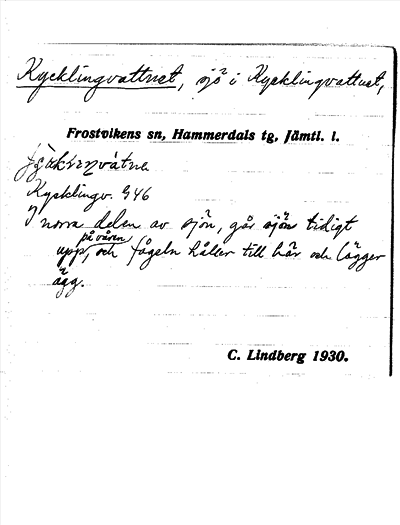 Kycklingvattnet, sjö i Kycklingvattnet,
Frostvikens sn, Hammerdals tg, Jämtl. l.
Kycklingv. 946
I norra delen av sjön, går sjön tidigt
upp på våren, och fågeln håller till här och lägger
ägg.
C. Lindberg 1930.